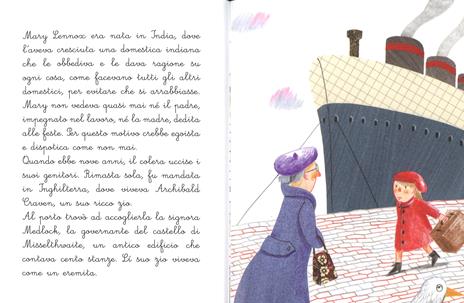 Mary Lennox era nata in India, dove
l'aveva cresciuta una domestica indiana
che le obbediva e le dava ragione su
ogni cosa, come facevano tutti gli altri
domestici, per evitare che si arrabbiasse.
Mary non vedeva quasi mai né il padre,
impegnato nel lavoro, né la madre, dedita
alle feste. Per questo motivo crebbe egoista
e dispotica come non mai.
Quando ebbe nove anni, il colera uccise i
suoi genitori. Rimasta sola, fu mandata
in Inghilterra, dove viveva Archibald
Craven, un suo ricco zio.
Al porto trovò ad accoglierla la signora
Medlock, la governante del castello di
Misselthwaite, un antico edificio che
contava cento stanze. Lì suo zio viveva
come un eremita.